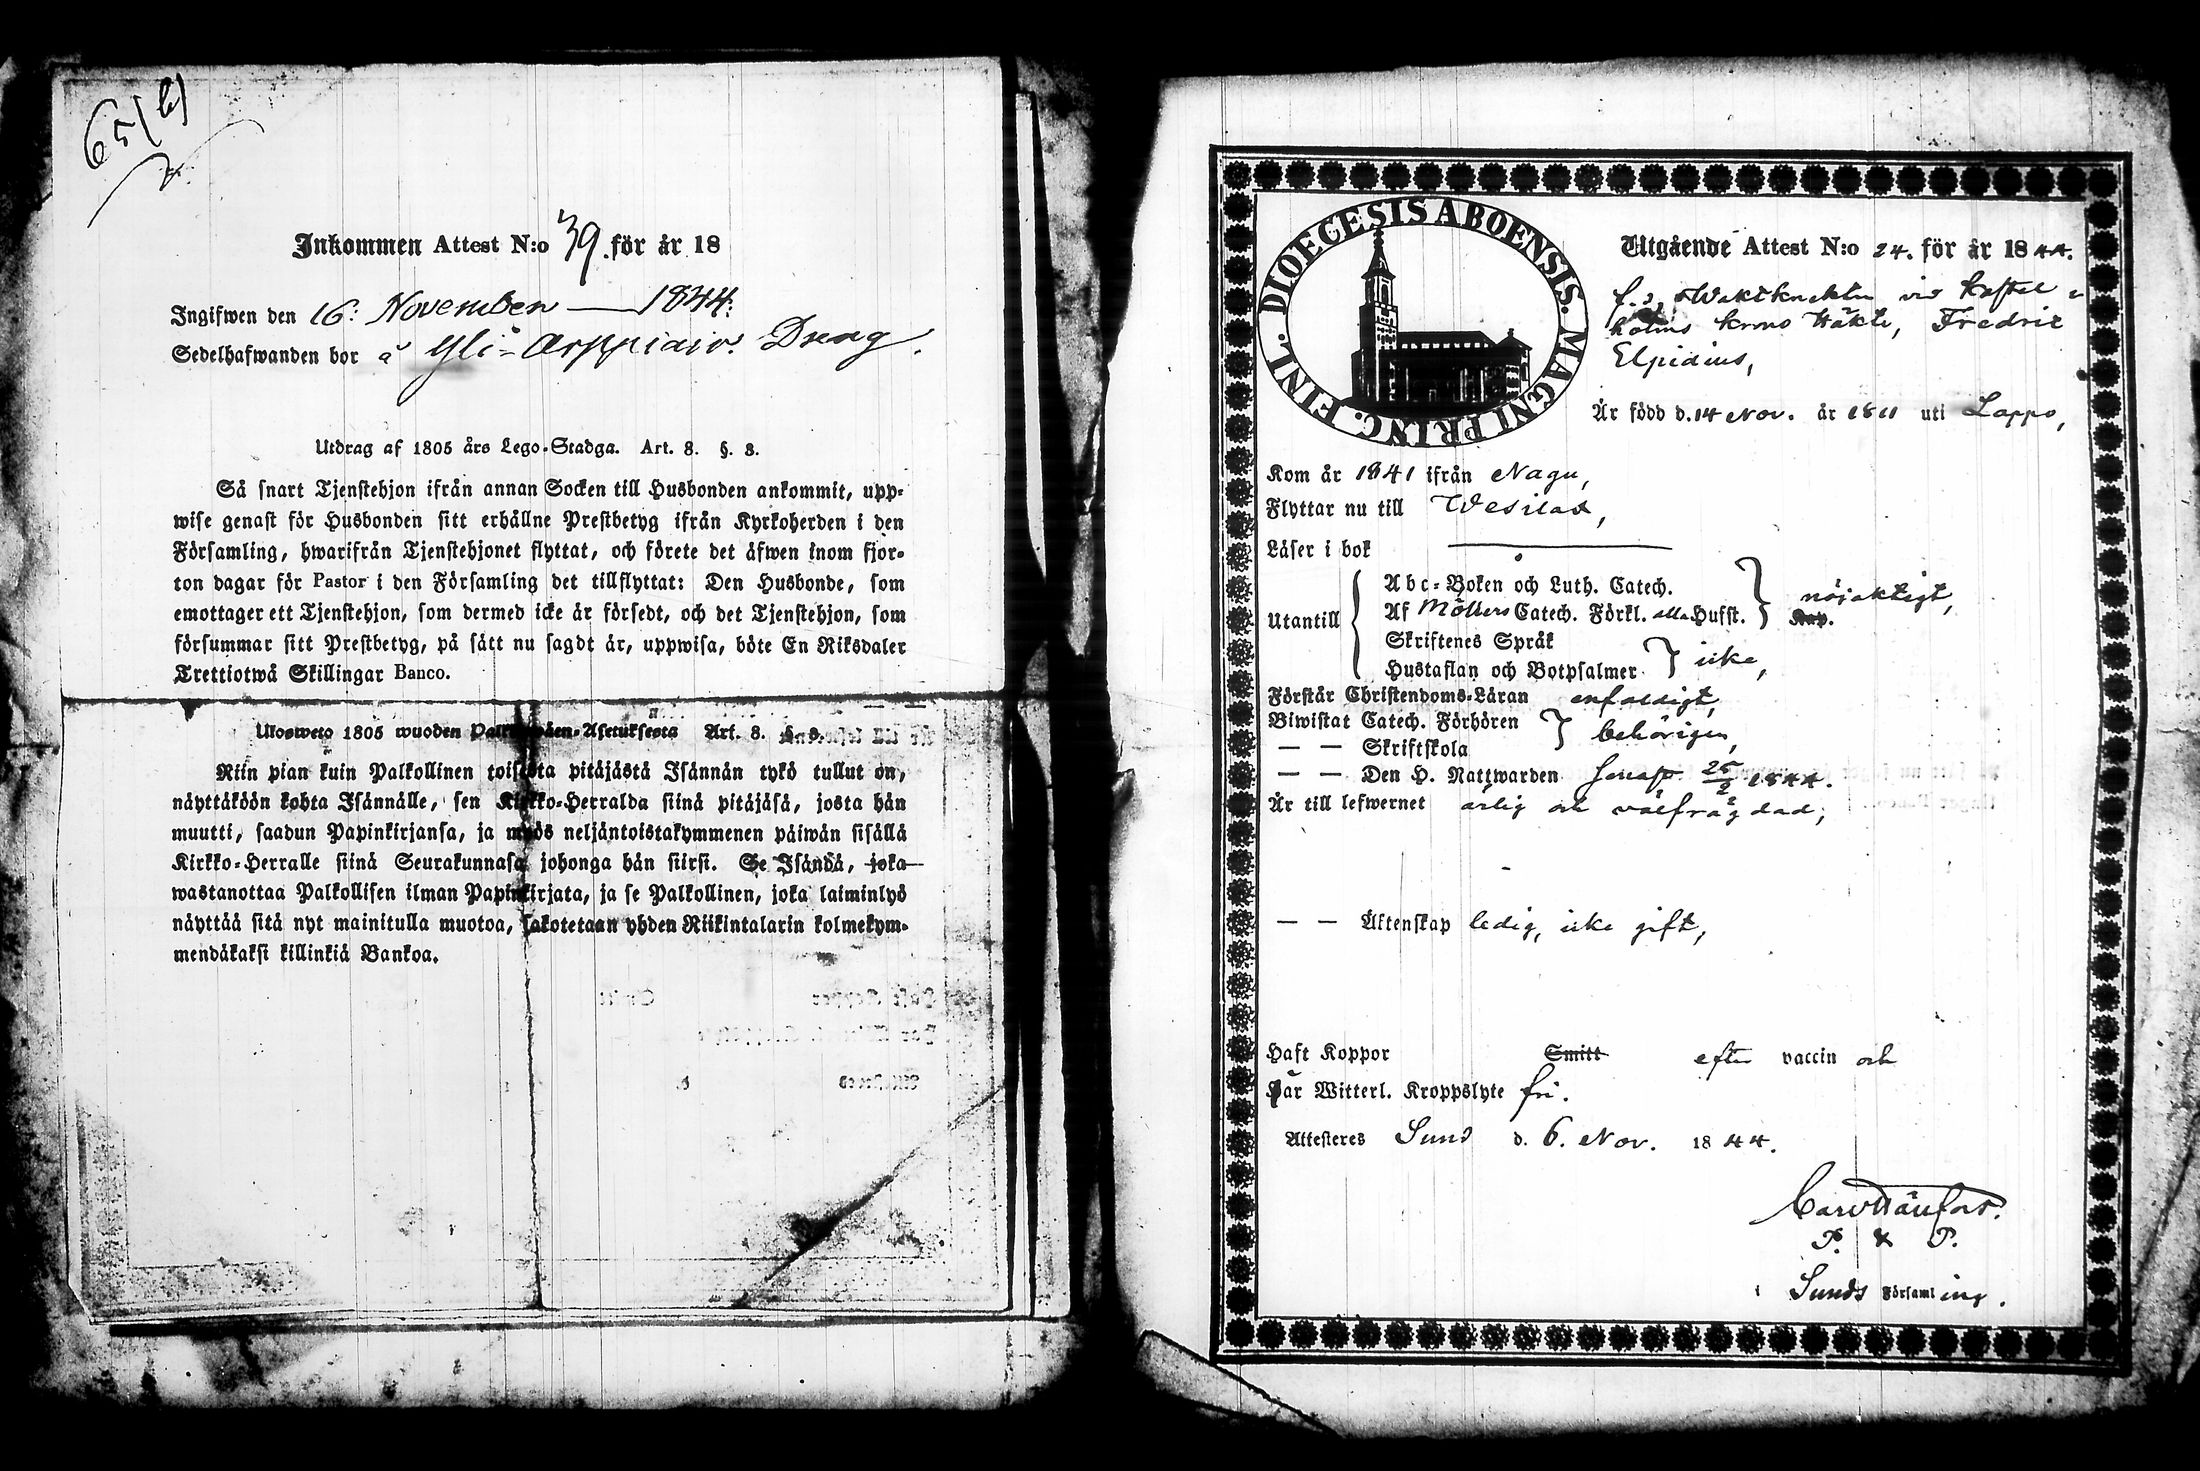 65/b)
Inkommen Attest N:o 39. för år 18
Ingifwen den 16: November — 1844.
Sedelhafwanden bor å Yli-Arppiais. Dreng.
Utdrag af 1805 års Lego-Stadga. Art. 8. §. 8.
Så snart Tjenstehjon ifrån annan Socken till Husbonden ankommit, upp-
wise genast för Husbonden sitt erhållne Prestbetyg ifrån Kyrkoherden i den
Församling, hwarifrån Tjenstehjonet flyttat, och förete det äfwen inom fjor-
ton dagar för Pastor i den Församling det tillflyttat: Den Husbonde, som
emottager ett Tjenstehjon, som dermed icke är försedt, och det Tjenstehjon, som
försummar sitt Prestbetyg, på sätt nu sagdt är, uppwisa, böte En Riksdaler
Trettiotwå Skillingar Banco.
Ulosweto 1805 wuoden Palkkawäen-Asetuksesta Art. 8. §. 8.
Niin pian kuin Palkollinen toisesta pitäjästä Isännän tykö tullut on,
näyttäköön kohta Isännälle, sen Kirkko-Herralda siinä pitäjäsä, josta hän
muutti, saadun Papinkirjansa, ja myös neljäntoistakymmenen päiwän sisällä
Kirkko-Herralle siinä Seurakunnasa johonga hän siirsi. Se Isändä, joka
wastanottaa Palkollisen ilman Papinkirjata, ja se Palkollinen, joka laiminlyö
näyttää sitä nyt mainitulla muotoa, sakotetaan yhden Riikintalarin kolmekym-
mendäkaksi killinkiä Bankoa.
FINL. DIOECESIS ABOENSIS. MAGNI PRINC.
Utgående Attest N:o 24. för år 1844.
f. d. Waktknekten vid Kastel-
holms Krono Häkte, Fredric
Elpidius,
År född d. 14 Nov. år 1811 uti Lappo,
Kom år 1841 ifrån Nagu,
Flyttar nu till Wesilax,
Läser i bok —
Utantill
Abc-Boken och Luth. Catech.
Af Möllers Catech. Förkl. alla Hufst. Kap. nöjaktigt,
Skriftenes Språk
Hustaflan och Botpsalmer icke,
Förstår Christendoms-Läran enfaldigt,
Biwistat Catech. Förhören
— — Skriftskola behörigen,
— — Den H. Nattwarden senast 25/2 1844.
Är till lefwernet ärlig och välfrägdad,
— — Äktenskap ledig, icke gift,
Haft Koppor Smitt efter vaccin och
är Witterl. Kroppslyte fri.
Attesteres Sund d. 6. Nov. 1844.
P. & P.
i Sunds Församling.